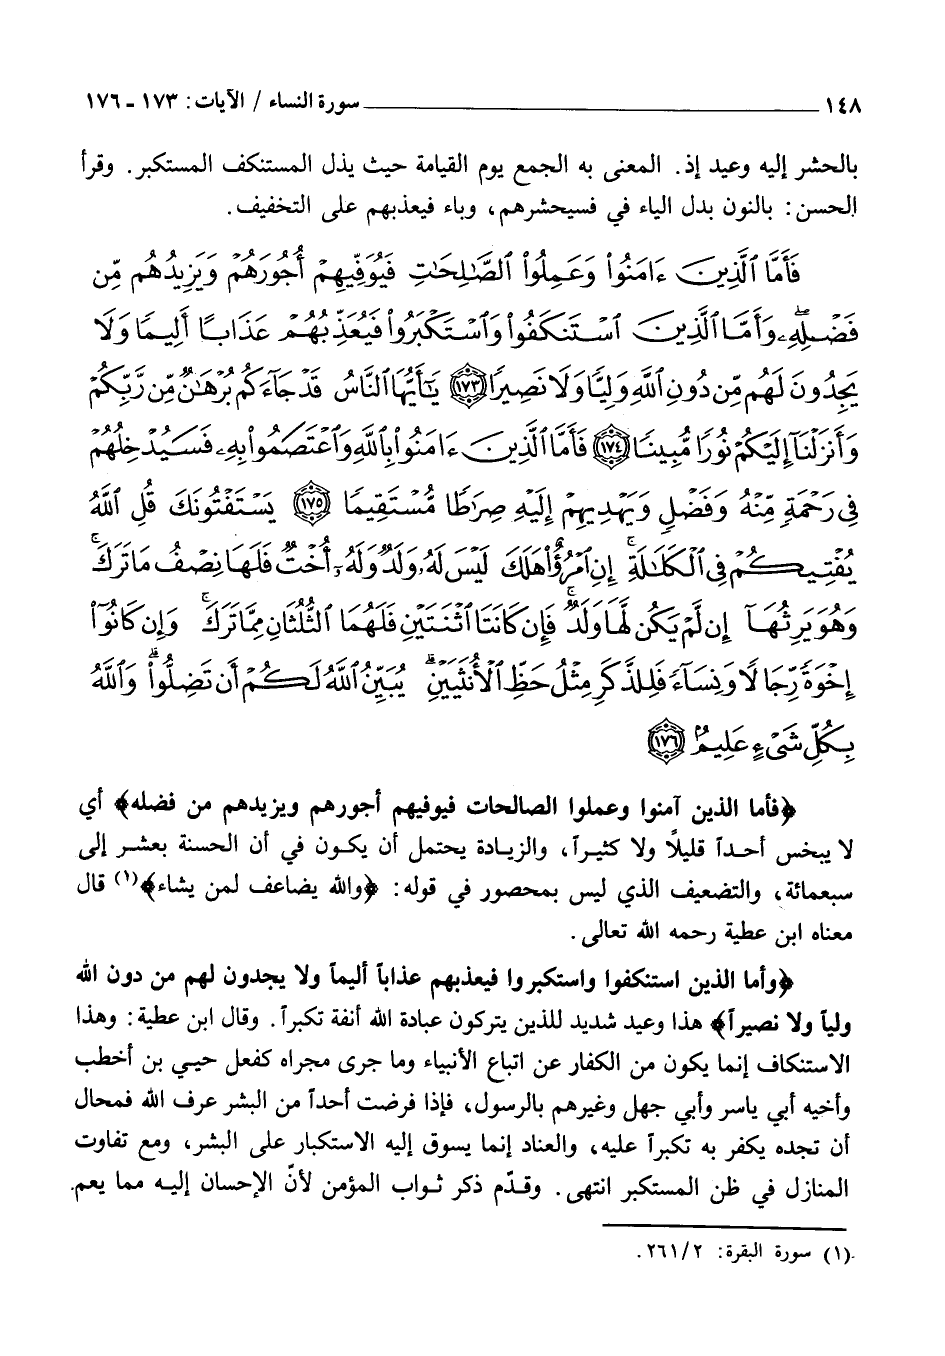 ١٤٨ سورة النساء / الآيات: ١٧٣ - ١٧٦
بالحشر إليه وعيد إذ. المعنى به الجمع يوم القيامة حيث يذل المستنكف المستكبر. وقرأ
الحسن: بالنون بدل الياء في فسيحشرهم، وباء فيعذبهم على التخفيف.
فَأَمَّا ٱلَّذِينَ ءَامَنُوا۟ وَعَمِلُوا۟ ٱلصَّٰلِحَٰتِ فَيُوَفِّيهِمْ أُجُورَهُمْ وَيَزِيدُهُم مِّن
فَضْلِهِۦ ۖ وَأَمَّا ٱلَّذِينَ ٱسْتَنكَفُوا۟ وَٱسْتَكْبَرُوا۟ فَيُعَذِّبُهُمْ عَذَابًا أَلِيمًا وَلَا
يَجِدُونَ لَهُم مِّن دُونِ ٱللَّهِ وَلِيًّا وَلَا نَصِيرًا ١٧٣ يَٰٓأَيُّهَا ٱلنَّاسُ قَدْ جَآءَكُم بُرْهَٰنٌ مِّن رَّبِّكُمْ
وَأَنزَلْنَآ إِلَيْكُمْ نُورًا مُّبِينًا ١٧٤ فَأَمَّا ٱلَّذِينَ ءَامَنُوا۟ بِٱللَّهِ وَٱعْتَصَمُوا۟ بِهِۦ فَسَيُدْخِلُهُمْ
فِى رَحْمَةٍ مِّنْهُ وَفَضْلٍ وَيَهْدِيهِمْ إِلَيْهِ صِرَٰطًا مُّسْتَقِيمًا ١٧٥ يَسْتَفْتُونَكَ قُلِ ٱللَّهُ
يُفْتِيكُمْ فِى ٱلْكَلَٰلَةِ ۚ إِنِ ٱمْرُؤٌا۟ هَلَكَ لَيْسَ لَهُۥ وَلَدٌ وَلَهُۥٓ أُخْتٌ فَلَهَا نِصْفُ مَا تَرَكَ ۚ
وَهُوَ يَرِثُهَآ إِن لَّمْ يَكُن لَّهَا وَلَدٌ ۚ فَإِن كَانَتَا ٱثْنَتَيْنِ فَلَهُمَا ٱلثُّلُثَانِ مِمَّا تَرَكَ ۚ وَإِن كَانُوٓا۟
إِخْوَةً رِّجَالًا وَنِسَآءً فَلِلذَّكَرِ مِثْلُ حَظِّ ٱلْأُنثَيَيْنِ ۗ يُبَيِّنُ ٱللَّهُ لَكُمْ أَن تَضِلُّوا۟ ۗ وَٱللَّهُ
بِكُلِّ شَىْءٍ عَلِيمٌۢ ١٧٦
﴿فأما الذين آمنوا وعملوا الصالحات فيوفيهم أجورهم ويزيدهم من فضله﴾ أي
لا يبخس أحداً قليلًا ولا كثيراً، والزيادة يحتمل أن يكون في أن الحسنة بعشر إلى
سبعمائة، والتضعيف الذي ليس بمحصور في قوله: ﴿والله يضاعف لمن يشاء﴾(١) قال
معناه ابن عطية رحمه الله تعالى.
﴿وأما الذين استنكفوا واستكبروا فيعذبهم عذاباً أليماً ولا يجدون لهم من دون الله
ولياً ولا نصيراً﴾ هذا وعيد شديد للذين يتركون عبادة الله أنفة تكبراً. وقال ابن عطية: وهذا
الاستنكاف إنما يكون من الكفار عن اتباع الأنبياء وما جرى مجراه كفعل حيي بن أخطب
وأخيه أبي ياسر وأبي جهل وغيرهم بالرسول، فإذا فرضت أحداً من البشر عرف الله فمحال
أن تجده يكفر به تكبراً عليه، والعناد إنما يسوق إليه الاستكبار على البشر، ومع تفاوت
المنازل في ظن المستكبر انتهى. وقدّم ذكر ثواب المؤمن لأنّ الإحسان إليه مما يعم
(١) سورة البقرة: ٢/٢٦١.